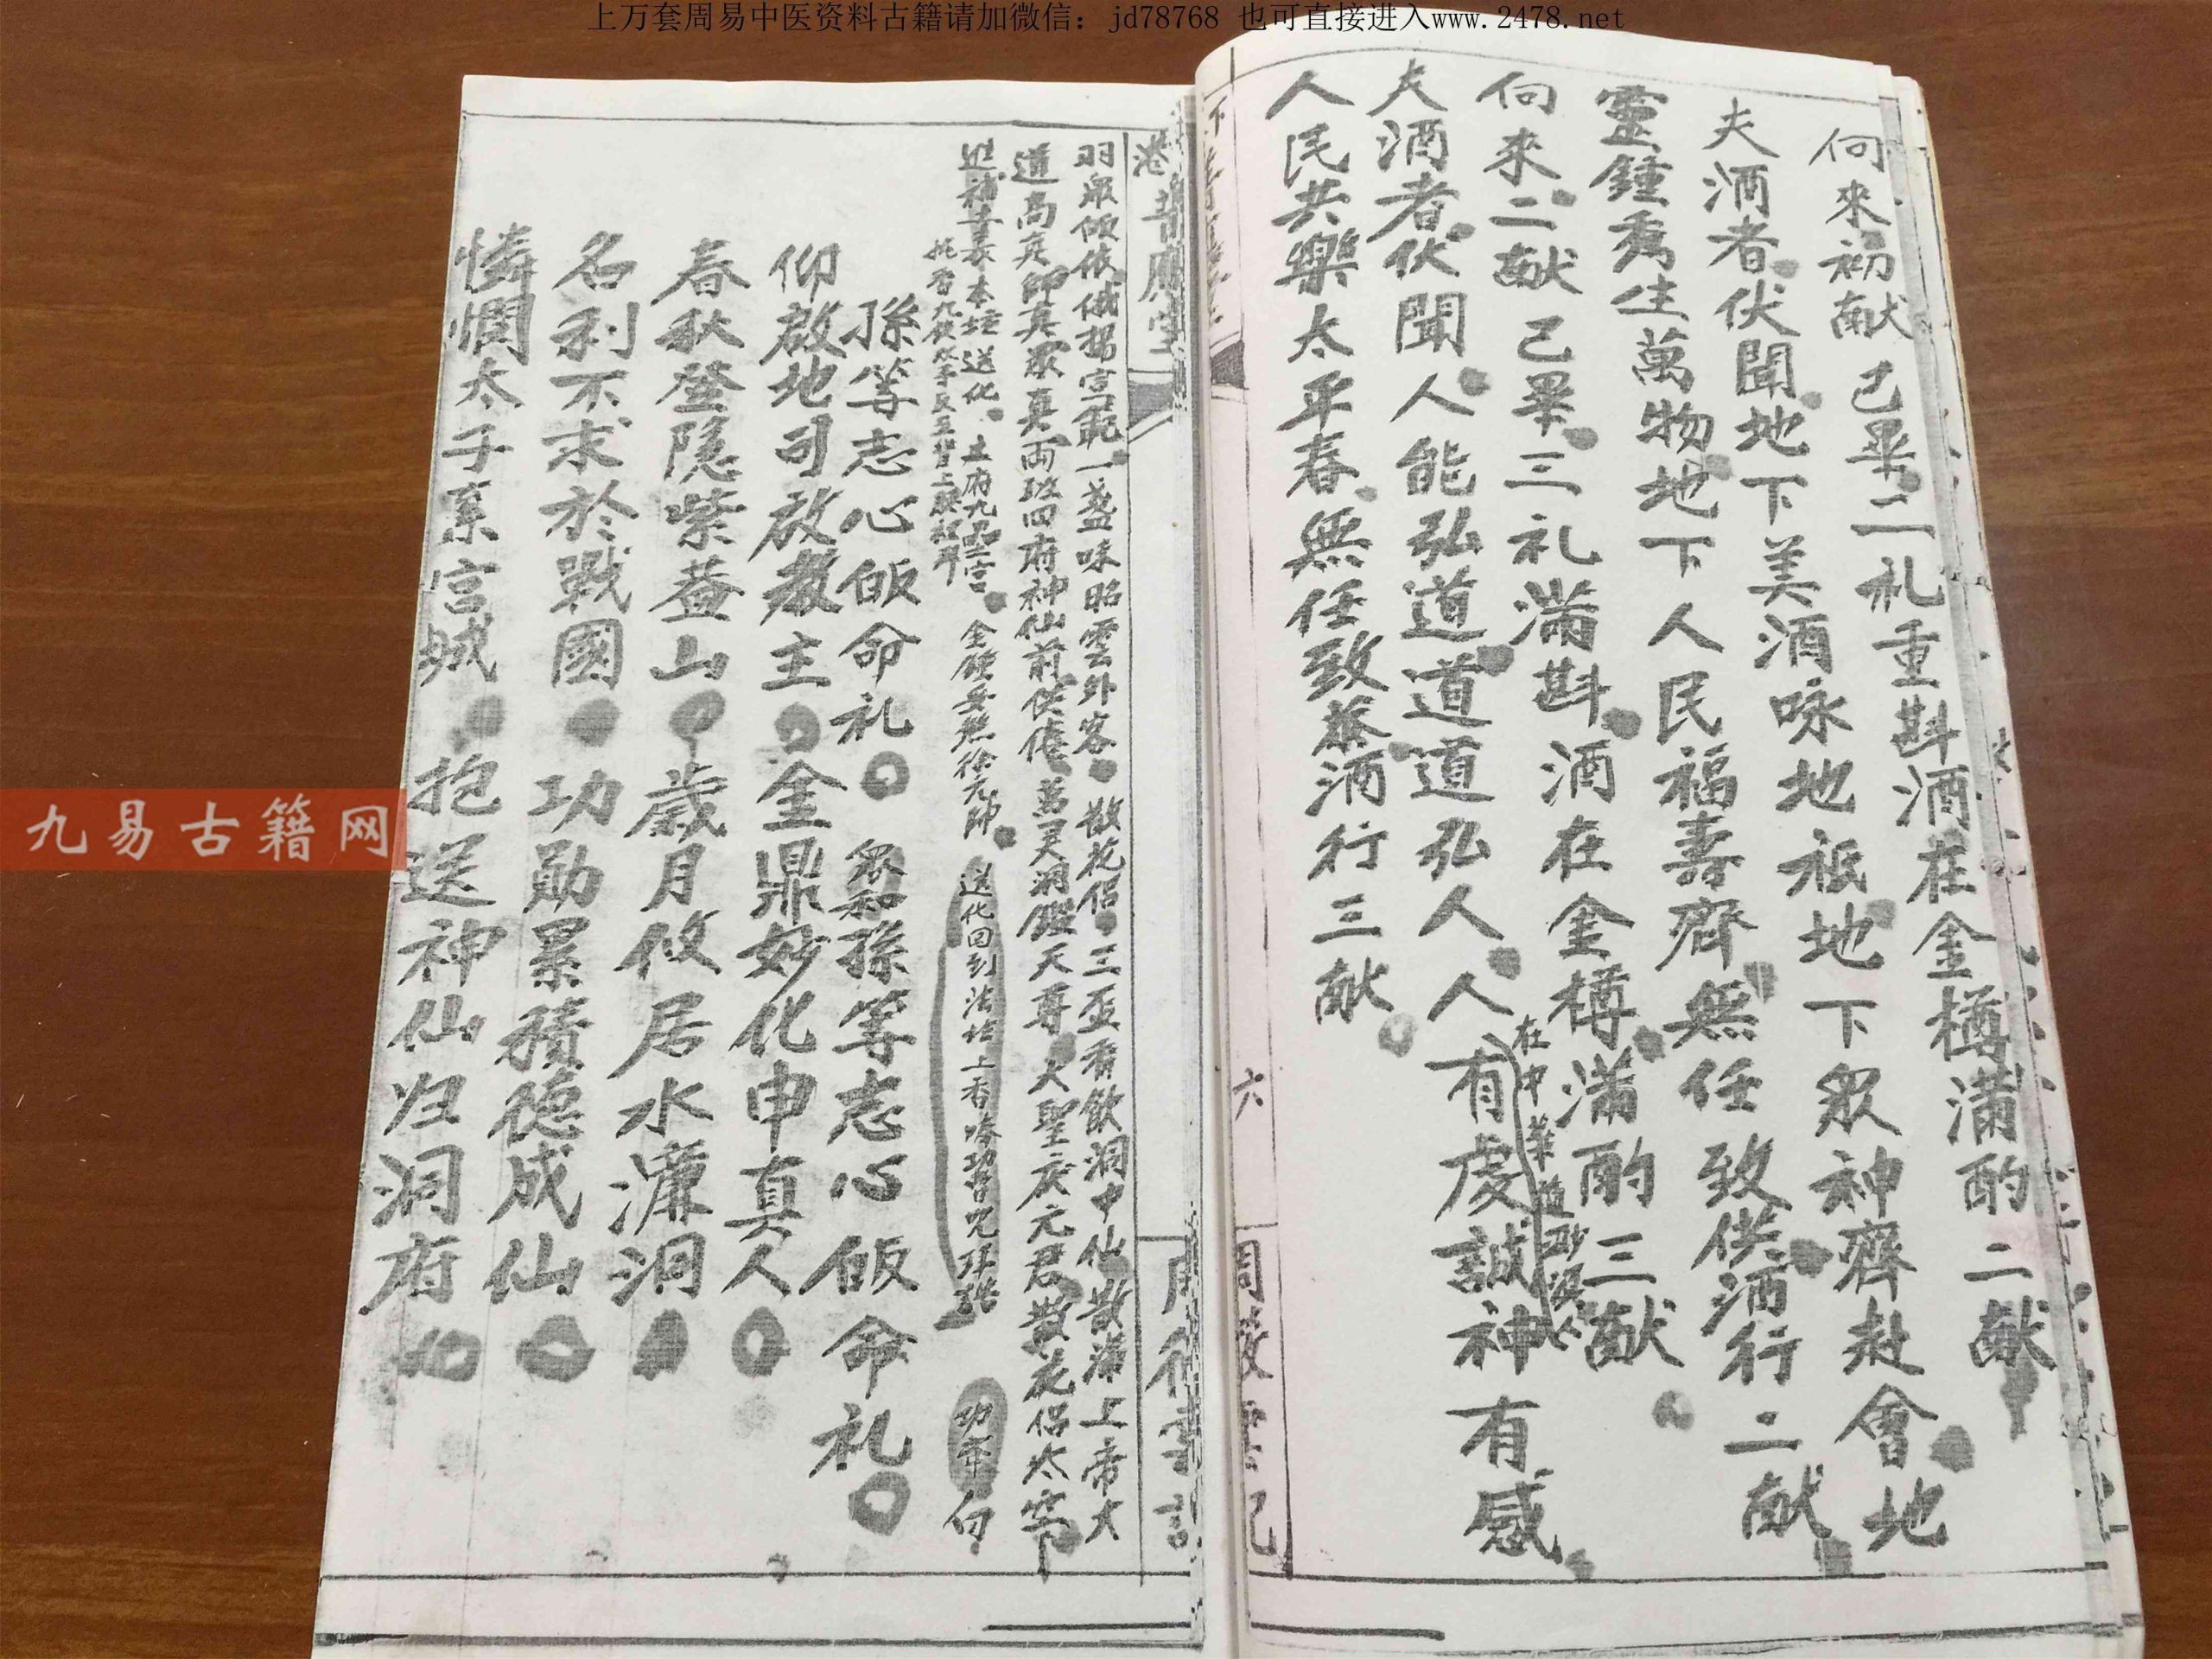 上万套周易中医资料古籍请加微信：jd78768 也可直接进入www.2478.net
向來初献已畢二礼重斟酒在金樽滿酌二献
夫酒者伏聞地下美酒咏地祇地下眾神齊赴會地
靈鍾秀生萬物地下人民福壽齊無任致供酒行二献
向來二献已畢三礼滿斟酒在金樽滿酌三献
夫酒者伏聞人能弘道道道弘人人有虔誠神有感
在中華
人民共樂太平春無任致恭酒行三献
六
羽眾傾依 宣範一盞味昭雲外客散花侶三盃看飲洞中仙散滿上帝大
道高真師真眾真両班四府神仙前供養萬灵洞鑒天尊大聖慶元君散花侶太
本壇送化 土府九 宮 金 徐元帥 送化回到法坛上香 功曹咒 功曹 向
孫等志心皈命礼 眾和孫等志心皈命礼
仰啟地司放教主 金鼎妙化申真人
春秋登隱紫蓋山 歲月攸居水濂洞
名利不求於戰國 功勛累積德成仙
憐憫太子棄宮城 抱送神仙归洞府
九易古籍网